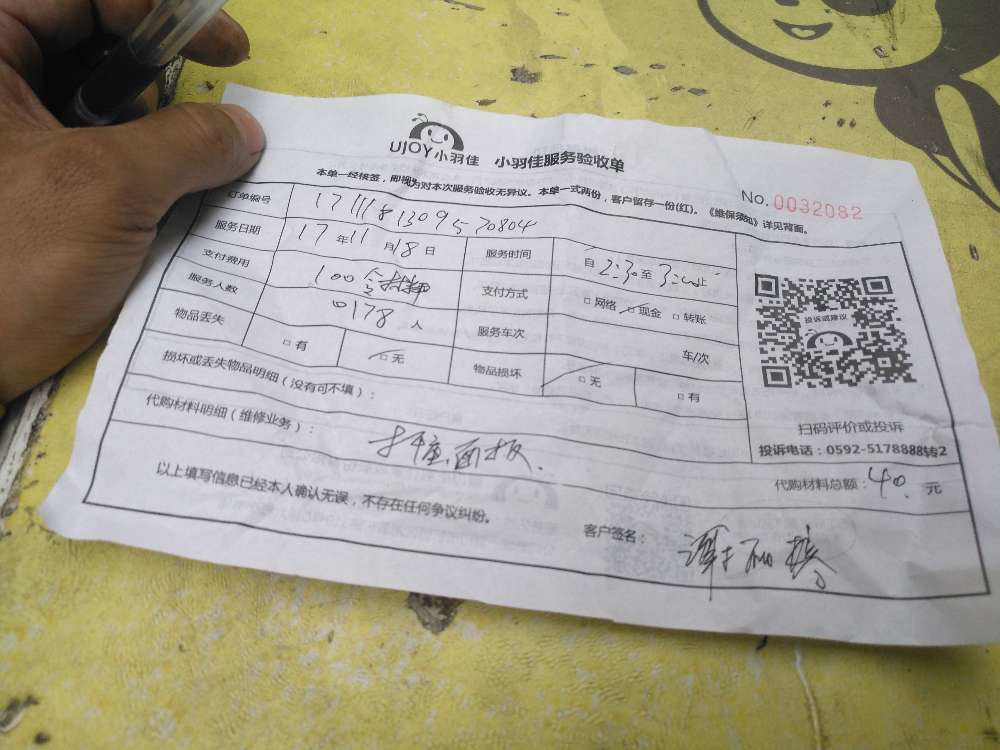 UJOY小羽佳 小羽佳服务验收单
本单一经核签，即视为对本次服务验收无异议。本单一式两份，客户留存一份(红)。《维保须知》详见背面。
No. 0032082
订单编号 1711181309570804
服务日期 17年11月18日 服务时间 自2:30至3:00止
支付费用 100含材料 支付方式 □网络 □现金 □转账
服务人数 178人 服务车次 车/次
物品丢失 □有 □无 物品损坏 □无 □有
损坏或丢失物品明细（没有可不填）：
投诉或建议
扫码评价或投诉
投诉电话：0592-5178888转2
代购材料明细（维修业务）： 面板.
代购材料总额：40.元
以上填写信息已经本人确认无误，不存在任何争议纠纷。
客户签名：